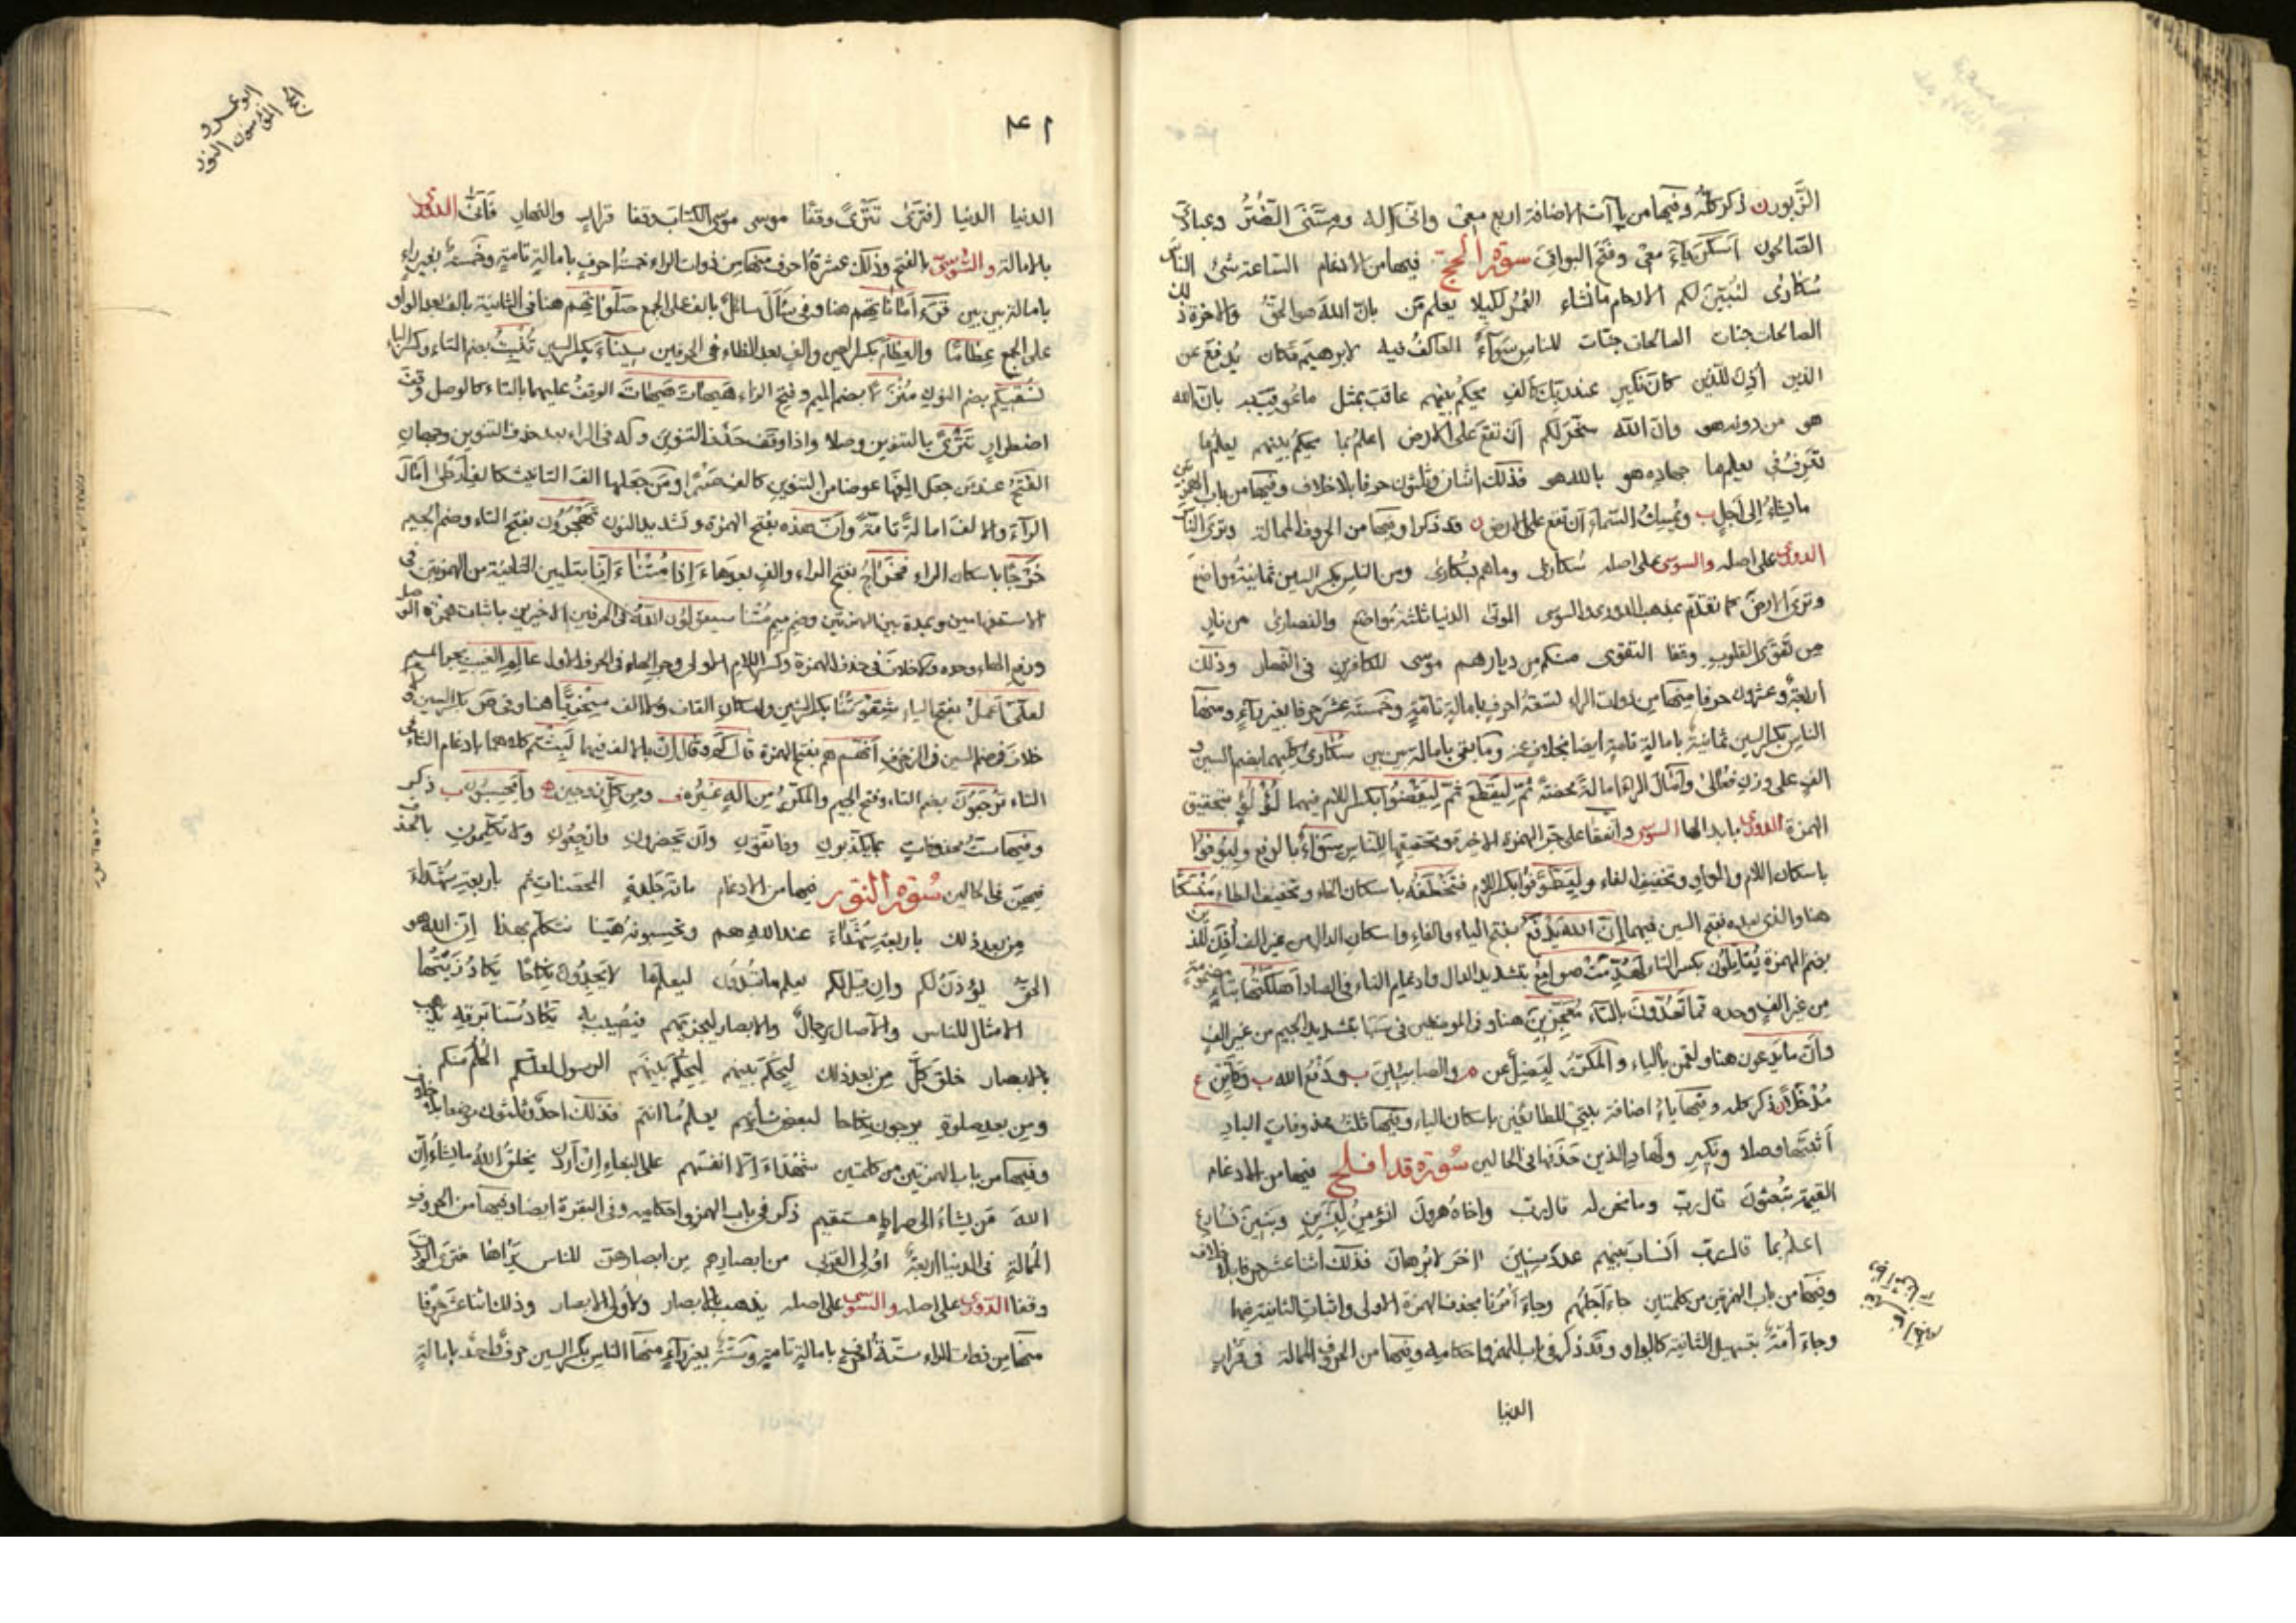 الزَّبور ن ذكر كله وفيها من ياآت الاضافة اربع معى وانى اله ومسّنى الضّرّ وعبادى
الصّالحون اسكن ياء معى وفتح البواقى سورة الحج فيها من الادغام الساعة شئ الناس
سُكارى لنُبيّن لكم الارحام ما نشاء العُمُر لكيلا يعلم من بان الله هو الحقّ والاخرة ذلك
الصالحات جنات الصالحات جنّات للناس سواءٌ العاكف فيه لابرهيم مكان يُدفع عن
الذين أُذِن للّذين كان نكير عند ربك كألف يحكم بينهم عاقب بمثل ما عُوقب به بان الله
هو من دونه هو وانّ الله سخّر لكم ان تقع على الارض اعلم بما يحكم بينهم يعلم ما
تعرف فى يعلم ما جهاده هو بالله هو فذلك اثنان وثلثون حرفا بلا خلاف وفيها من باب الهمزتين
ما نشاء الى اجل ب ويمسك السّماء ان تقع على الارض ن قد ذكرا وفيها من الحروف الممالة وترى الناس
الدورى على اصله والسوسى على اصله سُكارى وماهم بسُكارى ومن الناس بكسر السين ثمانية مواضع
وترى الارض كما تقدم مذهب الدورى والسوسى الموتى الدنيا ثلثة مواضع والنصارى من نار
من تقوى القلوب وقفا التقوى منكم من ديارهم موسى للكافرين فى الابصار وذلك
اربعة وعشرون حرفا منها من ذوات الراء تسعة احرف بامالة تامة وخمسة عشر حرفا بغير راء ومنها
الناس بكسر السين ثمانية بامالة تامة ايضا بخلاف عنه وما بقى بامالة بين بين سُكارى كليهما بضم السين و
الف على وزن فُعالى وامال الراء امالة محضة ثمّ لِيقطع ثمّ لِيقضوا بكسر اللام فيهما لؤلؤ بتحقيق
الهمزة الدورى بابدالها السوسى واتفقا على الهمزة الاخيرة وتحقيقها للناس سواءٌ بالرفع وليُوفوا
باسكان اللام والواو وتخفيف الفاء وليطّوّفوا بكسر اللام فتخطفه باسكان الخاء وتخفيف الطاء منسكا
هنا والذى بعده بفتح السين فيهما ان الله يدفع بفتح الياء والفاء واسكان الدال من غير الف أُذن للذين
بضم الهمزة يقاتلون بكسر التاء لهدّمت صوامع بتشديد الدال وادغام التاء فى الصاد اهلكتها بتاء مضمومة
من غير الف وحده ممّا تعدّون بالتاء مُعجّزين هنا وفى الموضعين فى سبأ بتشديد الجيم من غير الف
وانّ ما يدعون هنا ولقمن بالياء والمكرّر ليضل عن والصابئين ب ودفع الله ب وكأيّن ع
مُدخلا ن ذكر كله وفيها ياء اضافة بيتى للطائفين باسكان الياء وفيها ثلث محذوفات الباد
اثبتها وصلا ونكير ولهاد الذين حذفها فى الحالين سورة قد افلح فيها من الادغام
القيمة تبعثون قال ربّ وما نحن له قال رب واخاه هرون أنؤمن لبشرين وبنين نسارع
اعلم بما قال ربّ انساب بينهم عدد سنين اخر لا برهان فذلك اثنا عشر حرفا بلا خلاف
وفيها من باب الهمزتين من كلمتين جاء اجلهم وجاء امرنا بحذف الهمزة الاولى واثبات الثانية فيهما
وجاء امّةً بتسهيل الثانية كالواو وقد ذكر فى باب الهمز واحكامه وفيها من الحروف الممالة فى قرار
الدنيا
٤١
ابو عمرو
الحج المؤمنون النور
الدنيا الدنيا افترى تترى وقفا موسى موسى الكتاب وقفا قرار والنهار فانّى الدورى
بالامالة والسُّوسى بالفتح وذلك عشرة احرف منها من ذوات الراء خمسة احرف بامالة تامة وخمسة بغير راء
بامالة بين بين قرء لاماناتهم هنا وفى سأل سائل بالف على الجمع صلواتهم هنا فى الثانية بالف بعد الواو
على الجمع عظاما والعظام بكسر العين والف بعد الظاء فى الحرفين سيناء بكسر السين تُنبت بضم التاء وكسر الباء
نُسقيكم بضم النون مُنزلا بضم الميم وفتح الزاء هيهات هيهات الوقف عليهما بالتاء كالوصل وقف
اضطرار تترًى بالتنوين وصلا واذا وقف حذف التنوين وله فى الراء بعد حذف التنوين وجهان
الفتح عند من جعل الفها عوضا من التنوين كالف همسا ومن جعلها الف التانيث كالف ارطى امال
الراء والالف امالة تامة وانّ هذه بفتح الهمزة وتشديد النون تَهجُرون بفتح التاء وضم الجيم
خرجا باسكان الراء فخراج بفتح الراء والف بعدها ءاذا مُتنا ءانا بتليين الثانية من الهمزتين فى
الاستفهامين وبمدة بين الهمزتين وضم ميم مُتنا سيقولون الله فى الحرفين الاخيرين باثبات همزة الوصل
ورفع الهاء وحده ولا خلاف فى حذف الهمزة وكسر اللام الاولى وجر الهاء فى الحرف الاول عالم الغيب بجر الميم
لعلى اعمل بفتح الياء شقوتنا بكسر الشين واسكان القاف ولا الف سِخريّا هنا وفى ص بكسر السين ولا
خلاف فى ضم السين فى الزخرف انهم هم بفتح الهمزة قال كم وقال ان بالالف فيهما لبثتم كلاهما بادغام الثاء فى
التاء تُرجعون بضم التاء وفتح الجيم والمكرّر من اله غيره ف ومن كل زوجين ه وايحسبون ب ذكر
وفيها ستّ محذوفات بما كذّبون وفاتقون وان يحضرون وارجعون ولا تكلمون بالحذف
فيهنّ فى الحالين سورة النور فيها من الادغام مائة جلدة المحصنات ثم باربعة شهداء
من بعد ذلك باربعة شهداء عند الله هم وتحسبونه هيّنا نتكلّم بهذا ان الله هو
الحقّ يؤذن لكم وان قيل لكم يعلم ما تبدون ليعلم ما لا يجدون نكاحا يكاد زيتها
الامثال للناس والآصال رجال والابصار ليجزيهم فيصيب به يكاد سنا برقه يذهب
بالابصار خلق كلّ من بعد ذلك ليحكم بينهم ليحكم بينهم الرسول لعلكم الحُلُم منكم
ومن بعد صلوة يرجون نكاحا لبعض شأنهم يعلم ما انتم فذلك احدٌ وثلثون موضعا بلا خلاف
وفيها من باب الهمزتين من كلمتين شهداء الا انفسهم على البغاء ان اردن يخلق الله ما يشاء انّ
الله من يشاء الى صراط مستقيم ذكر فى باب الهمز واحكامه وفى البقرة ايضا وفيها من الحروف
الممالة فى الدنيا اربعة اولى القربى من ابصارهم من ابصارهن للناس يراها فترى الودق
وقفا الدّورى على اصله والسّوسى على اصله يذهب بالابصار ولاولى الابصار وذلك اثنا عشر حرفا
منها من ذوات الراء ستة احرف بامالة تامة وستة بغير راء منها الناس بكسر السين حرف واحد بامالة